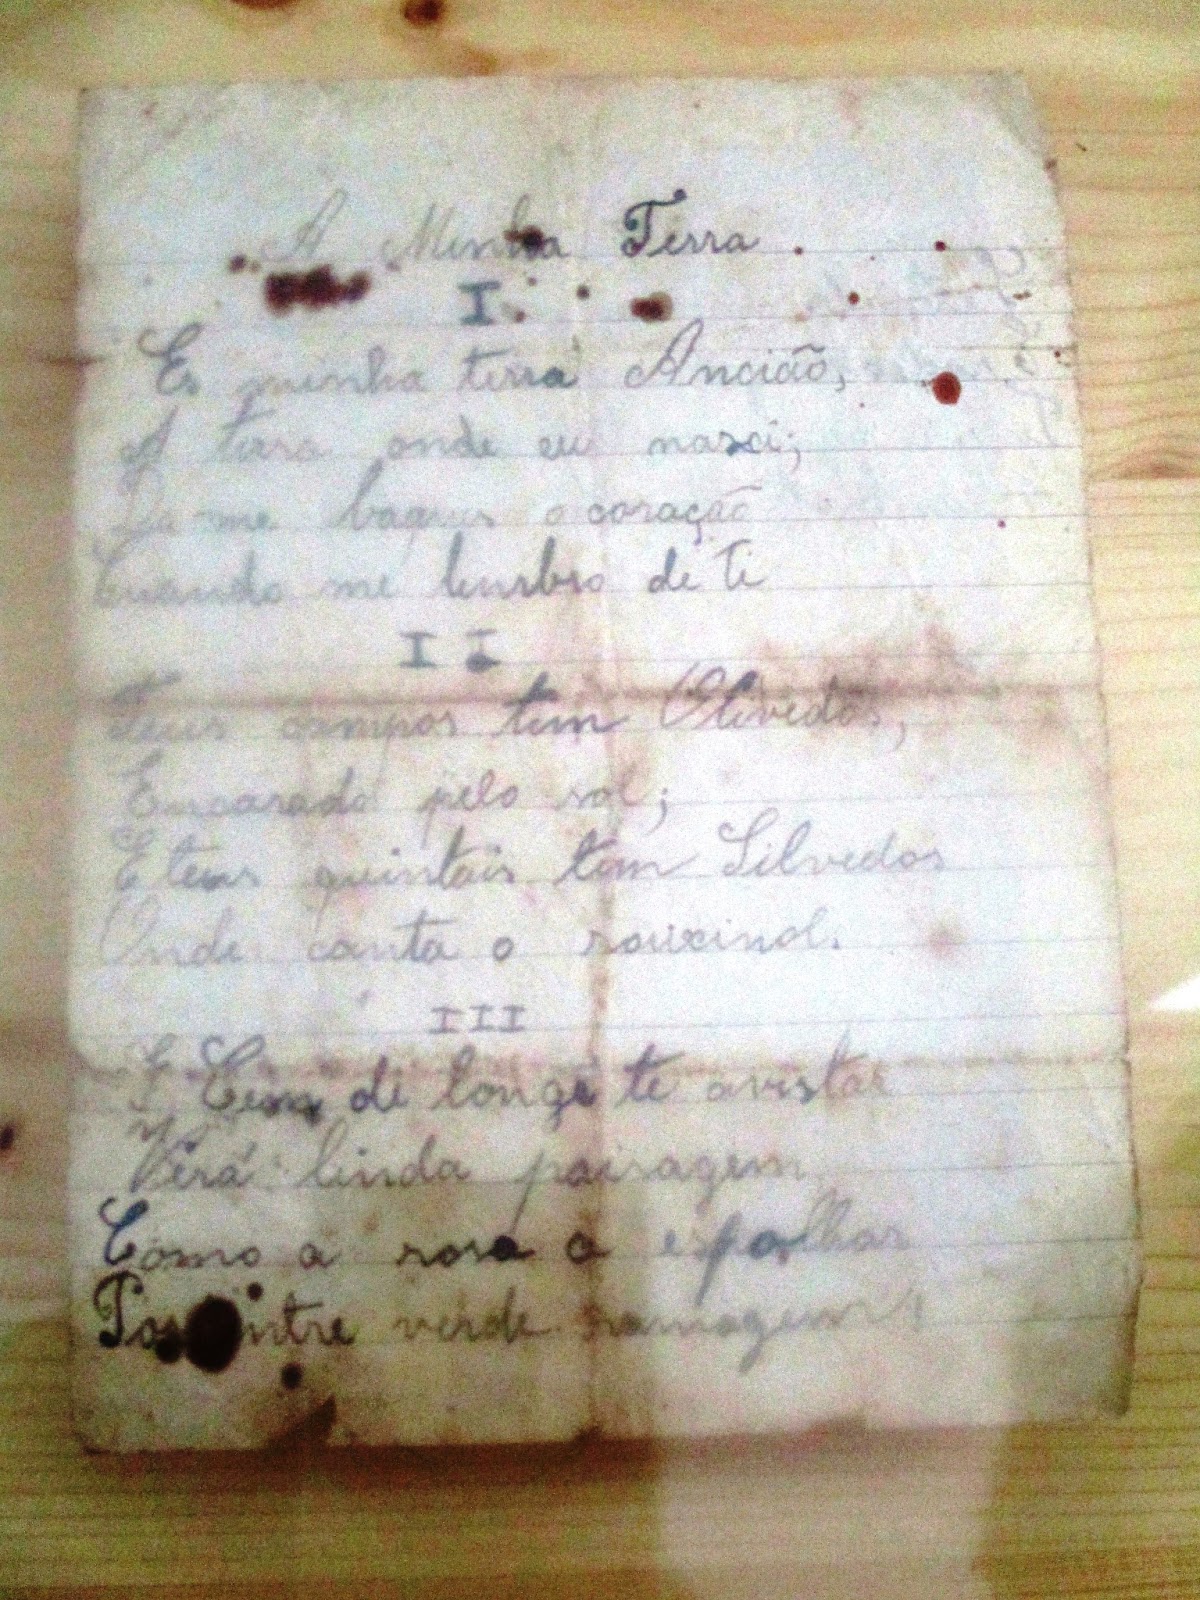 A Minha Terra
I
Es minha terra Ancião,
A terra onde eu nasci;
me o coração
Cuando me lembro de ti
II
Teus campos tem Olivedos,
Encarado pelo sol;
E teus quintais tem Silvedos
Onde canta o rouxinol.
III
de longe te avistar
Verá linda paisagem
Como a rosa a espalhar
Por entre verde ramagem!